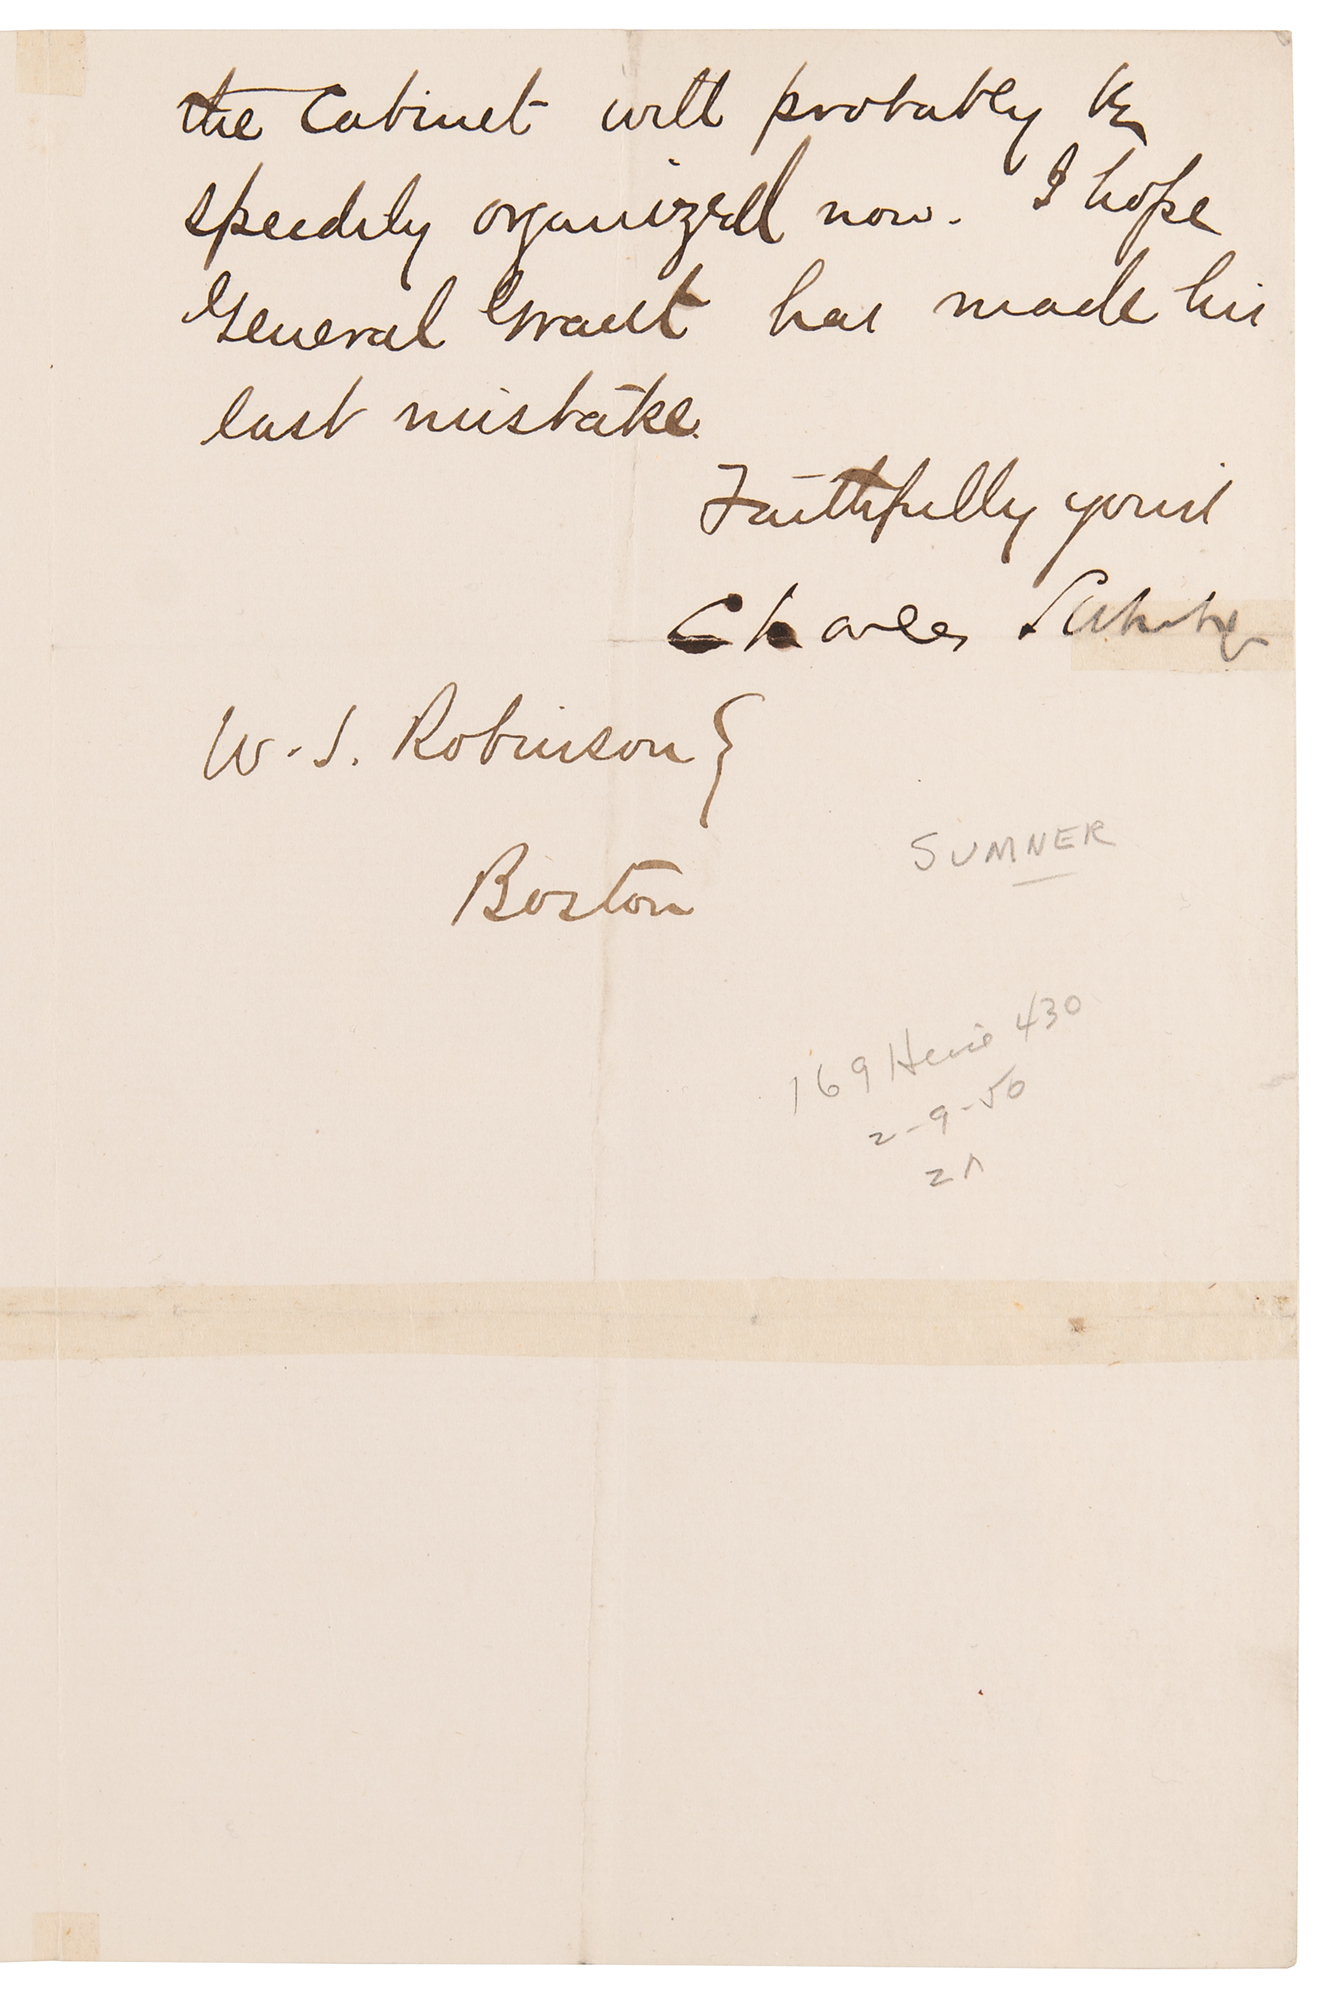 the Cabinet will probably be
speedily organized now. I hope
General Grant has made his
last mistake.
Faithfully yours
Charles Sumner
W. S. Robinson }
Boston
SUMNER
169 430
2-9-50